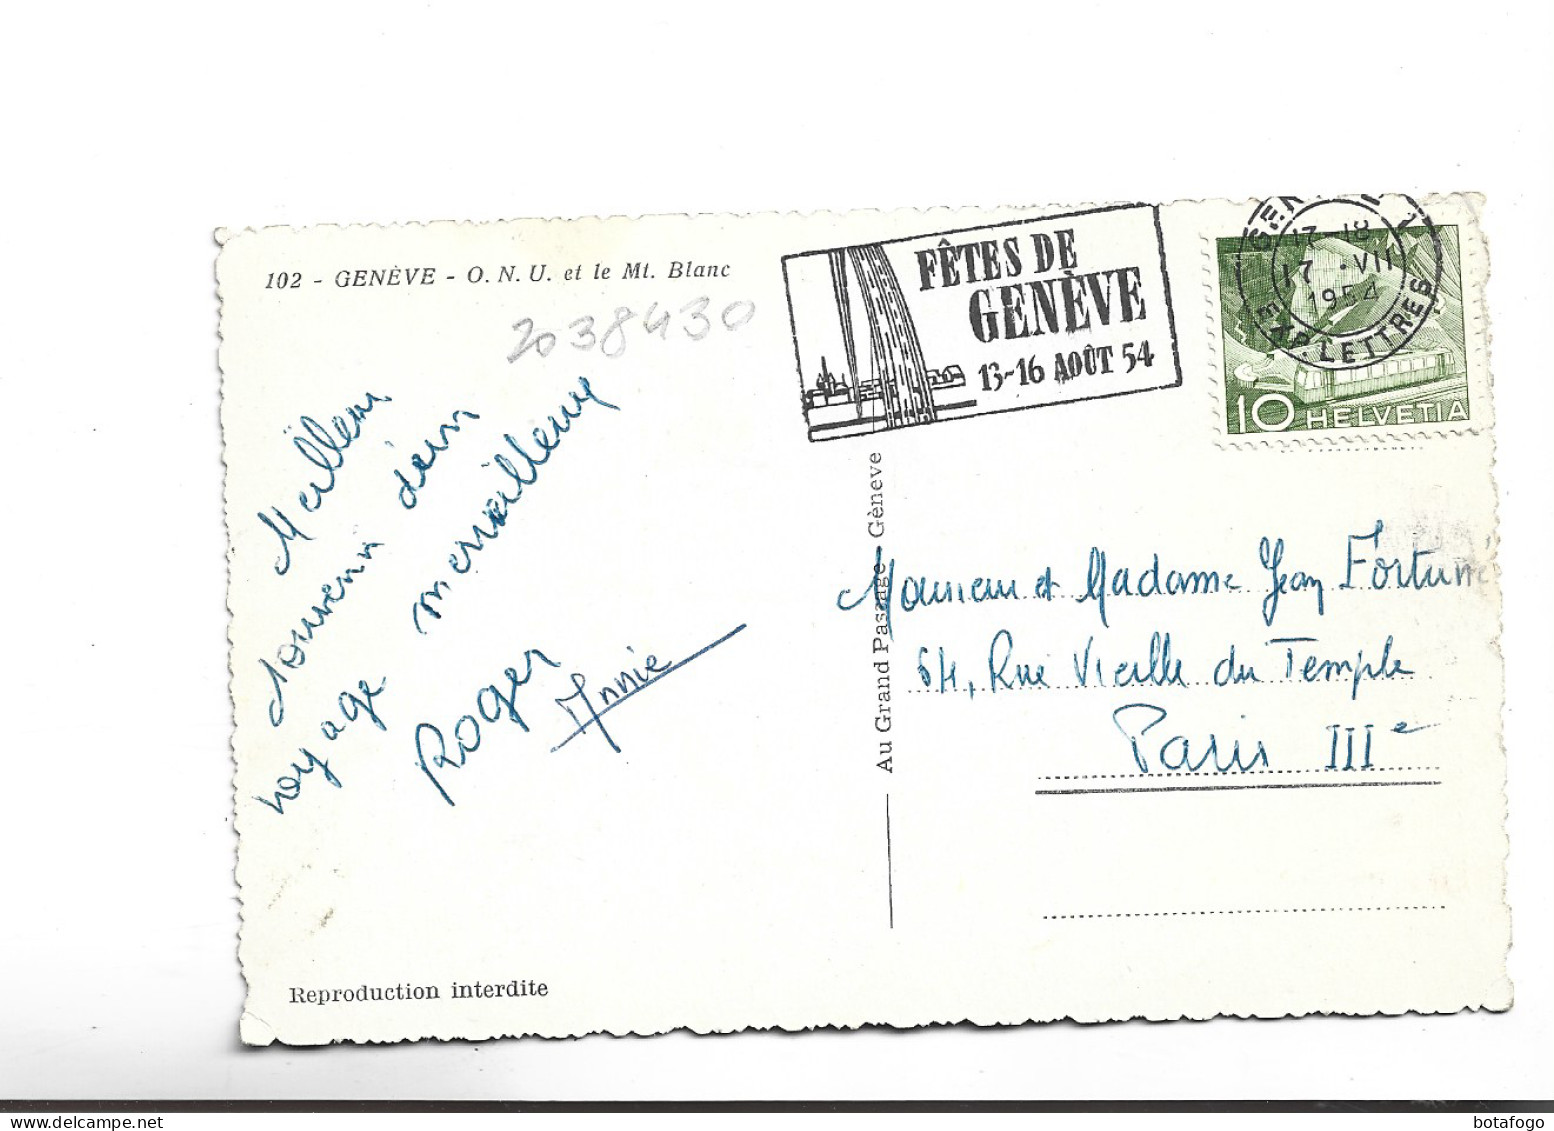 102 - GENÈVE - O. N. U. et le Mt. Blanc
2038430
Meilleur
souvenir d'un
voyage merveilleux
Roger
Annie
Reproduction interdite
Au Grand Passage - Genève
FÊTES DE
GENÈVE
13-16 AOÛT 54
17-18
17 • VII
1954
EXP. LETTRES
10 HELVETIA
Monsieur et Madame Jean Fortuné
64, Rue Vieille du Temple
Paris IIIe
botafogo